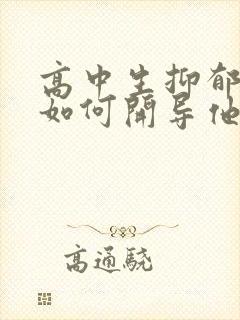 高中生抑郁
如何開导他
高通驍